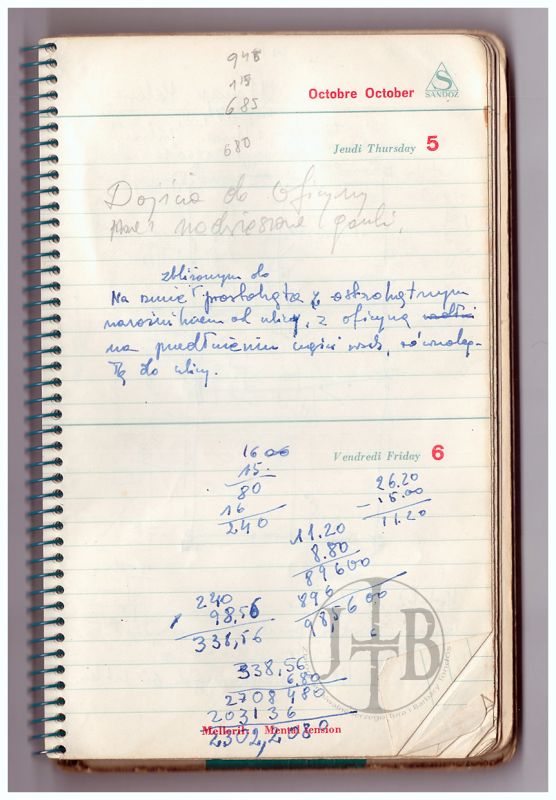 948
115
Octobre October
SANDOZ
685
680
Jeudi Thursday 5
Dojścia do Oficyny
przez
zbliżonym do
Na rzucie prostokąta z ostrokątnym
narożnikiem od ulicy, z oficyną
na przedłużeniu części wsch, równoleg-
łą do ulicy.
Vendredi Friday 6
16 00
15.
80
16
240
26.20
- 15.00
11.20
11.20
8.80
89600
896
98,5600
240
98,56
338,56
338,56
6.80
2708480
203136
2302,2080
JTB
Mellerif: Mental Tension